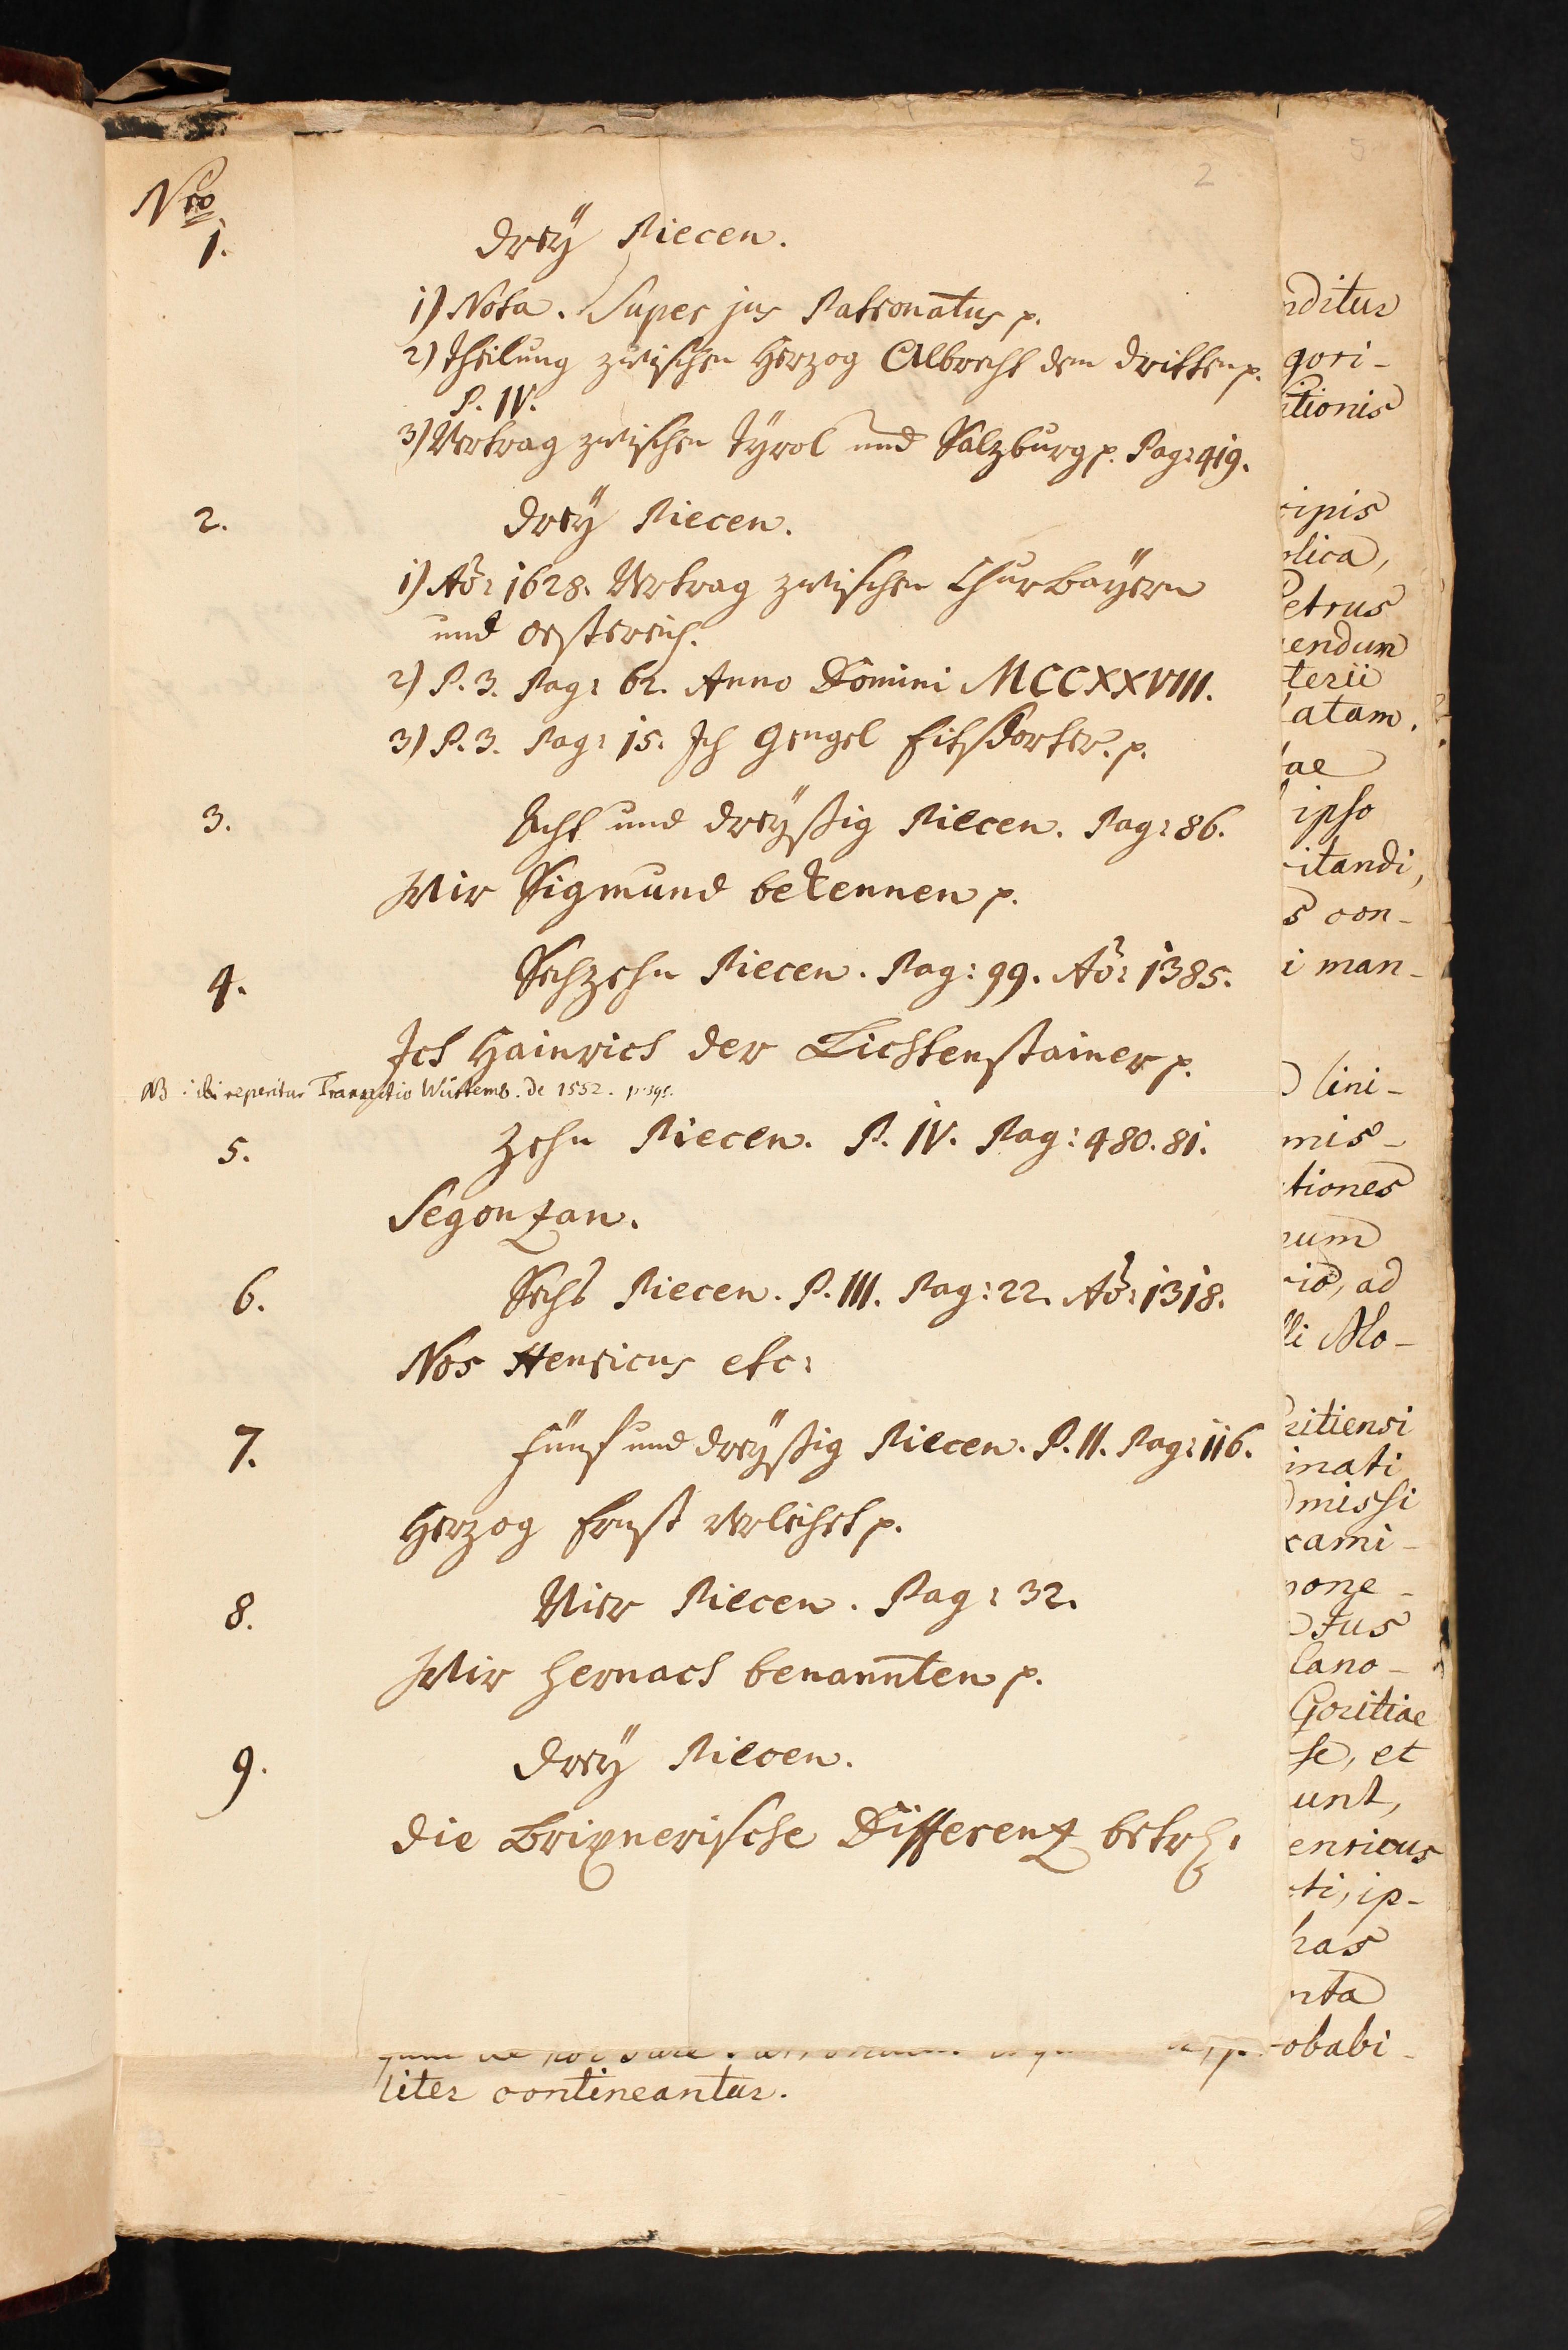 2
5
Nro
1. Dreÿ Piecen.
1) Nota. Super jus Patronatus p.
2) Theilung zwischen Herzog Albrecht dem dritten p.
P. IV.
3) Vertrag zwischen Tÿrol und Salzburg p. Pag: 419.
2. Dreÿ Piecen.
1) Aõ: 1628. Vertrag zwischen ChurBaÿern
und Oesterreich.
2) P. 3. Pag: 62. Anno Domini MCCXXVIII.
3) P. 3. Pag: 15. Ich Gengel p.
3. Acht und dreÿßig Piecen. Pag: 86.
Wir Sigmund bekennen p.
4. Sechzehn Piecen. Pag: 99. Aõ: 1385.
Ich Hainrich der Lichtenstainer p.
NB: ibi reperitur Transactio Würtemb. de 1552.
5. Zehn Piecen. P. IV. Pag: 480. 81.
Segonzan.
6. Sechs Piecen. P. III. Pag: 22. Aõ: 1318.
Nos Henricus etc:
7. Fünf und dreÿßig Piecen. P. II. Pag: 116.
Herzog Ernst verleihet p.
8. Vier Piecen. Pag: 32.
Wir hernach benannten p.
9. Dreÿ Piecen.
Die Brixnerische Differenz betrf:
liter contineantur.
nditur
gori-
itionis
cipis
olica,
Petrus
endum
terii
latam.
ae
ipso
citandi,
s con-
i man-
lini-
mis-
tiones
num
rio, ad
li Mo-
ritiensi
inati
missi
cami-
pone-
tus
cano-
Goritiae
se, et
unt,
enricus
ti, ip-
has
nta
obabi-